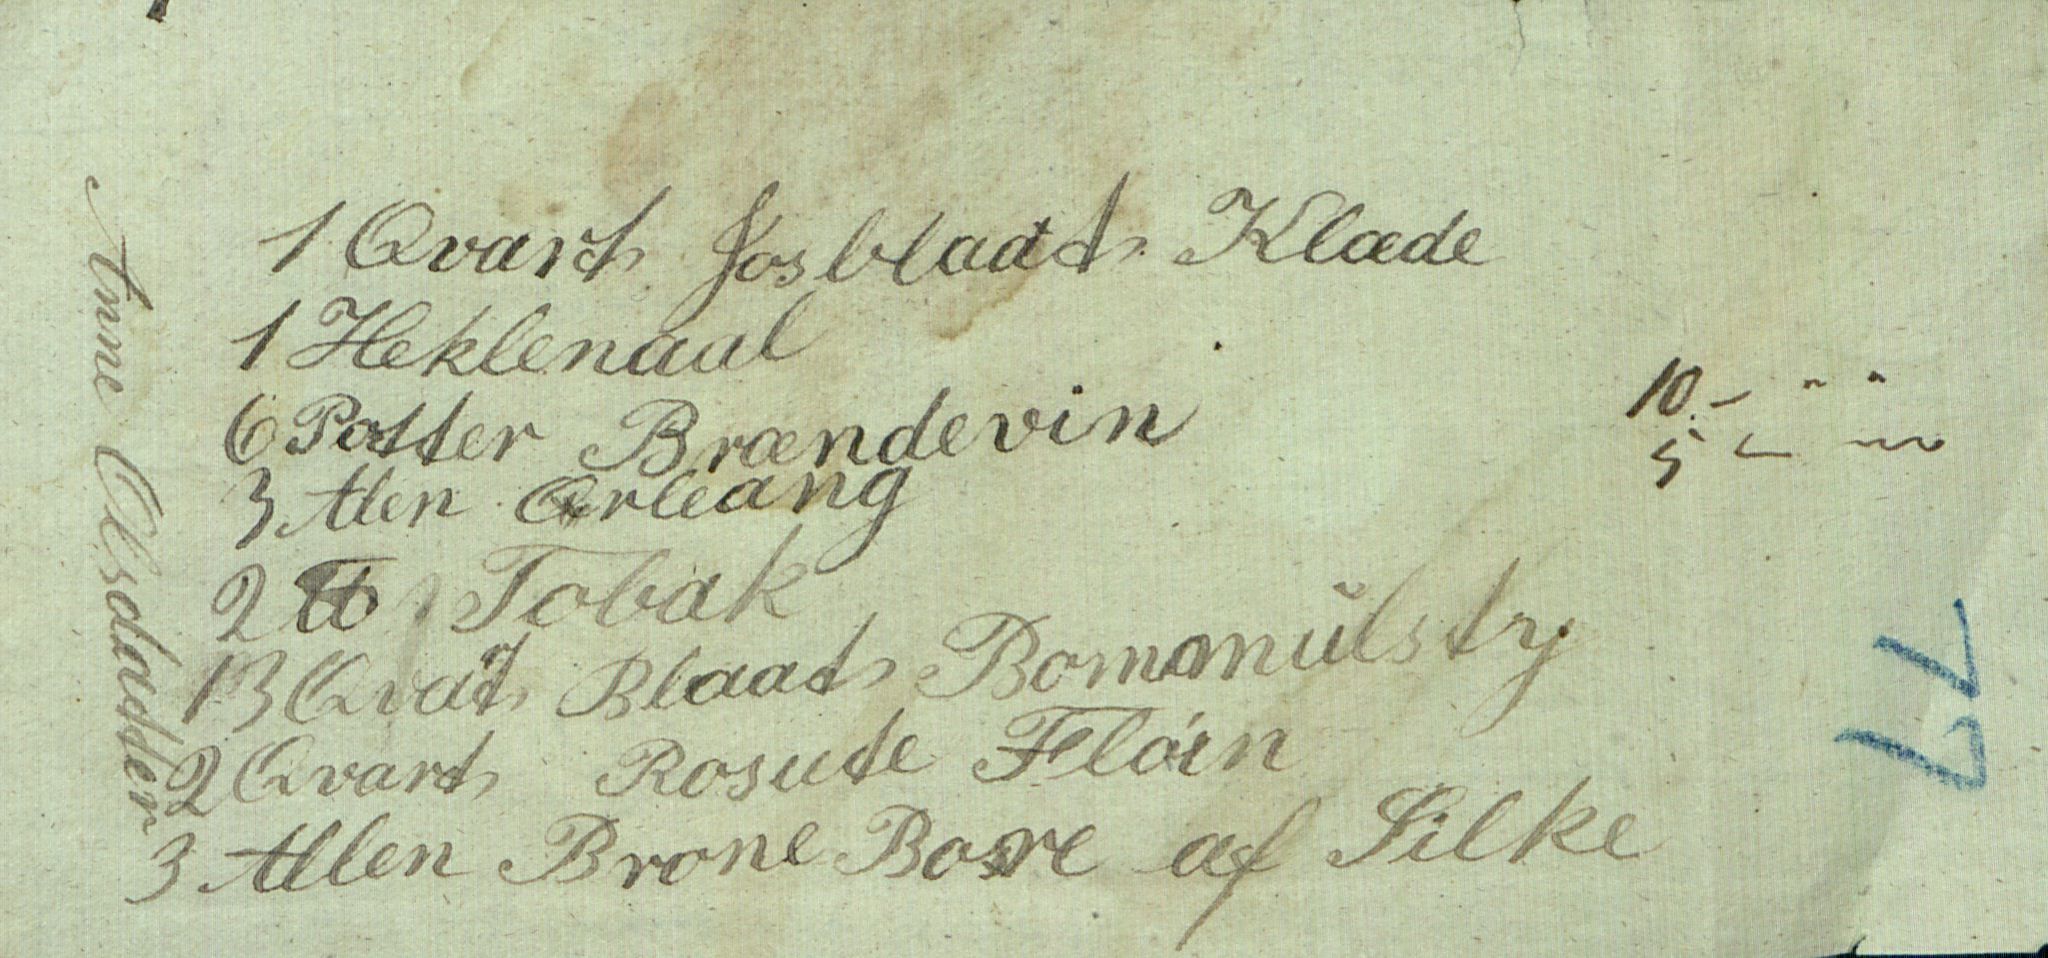 1 Qvart Josblaat Klæde
1 Heklenaal
6 Potter Brændevin
3 Alen Orleang
2 ℔ Tobak
13 Qvart Blaat Bommulsty
2 Qvart Rosute Floin
3 Allen Brone Bore af Silke
Anne Olsdatter
10
5
77